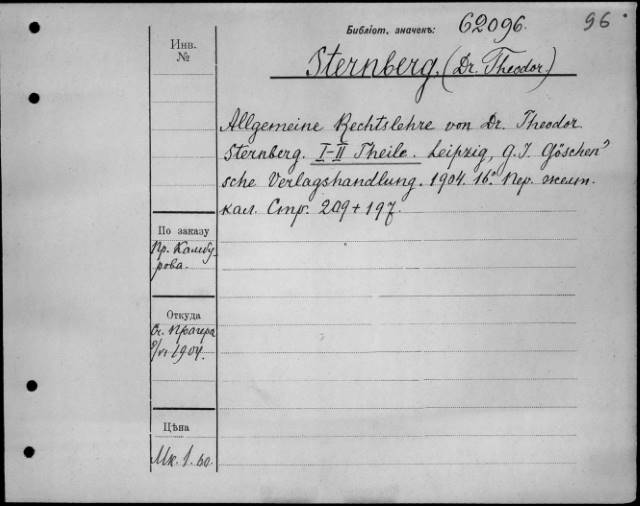 Библіот. значекъ: 62096. 96
Инв.
№
Sternberg. (Dr. Theodor)
Allgemeine Rechtslehre von Dr. Theodor
Sternberg. I-II Theile. Leipzig, G. J. Göschen'
sche Verlagshandlung. 1904. 16º. Пер. желт.
кал. Стр. 209 + 197.
По заказу
Пр. Камбу-
рова.
Откуда
Сч. Прагера
1904.
Цѣна
Мк. 1. 60.